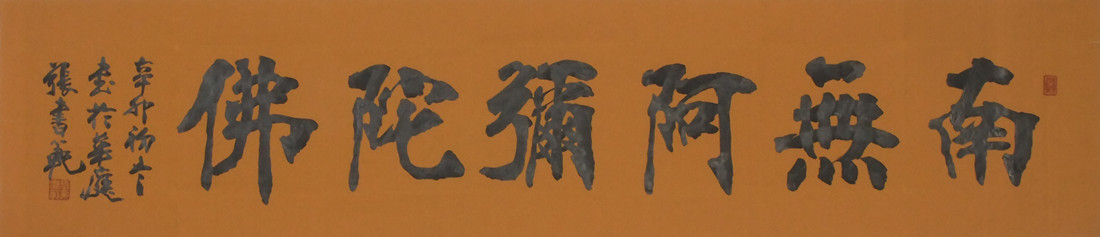 南無阿彌陀佛
辛卯初冬
書於華庭
張書範